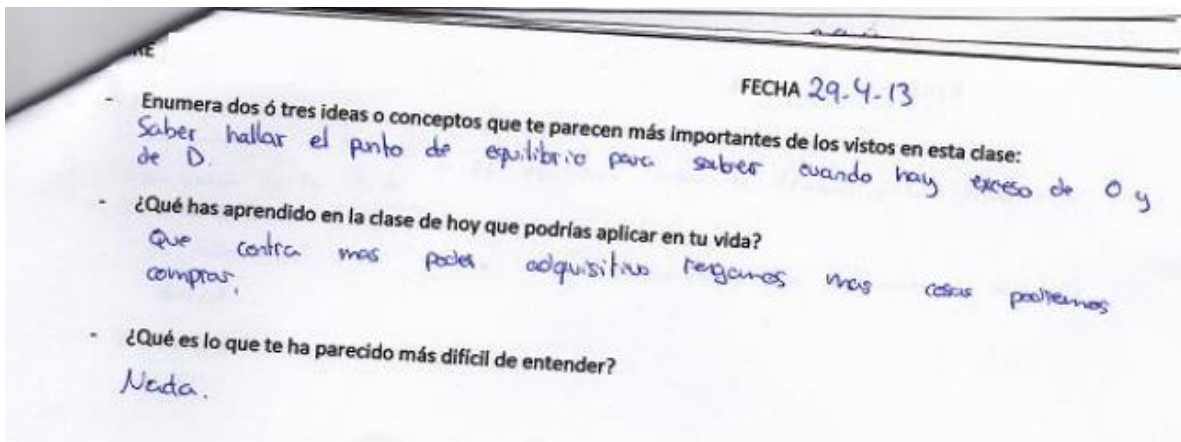 RE
FECHA 29-4-13
- Enumera dos ó tres ideas o conceptos que te parecen más importantes de los vistos en esta clase:
Saber hallar el punto de equilibrio para saber cuando hay exceso de O y
de D.
- ¿Qué has aprendido en la clase de hoy que podrías aplicar en tu vida?
Que contra mas poder adquisitivo tengamos mas cosas podremos
comprar.
- ¿Qué es lo que te ha parecido más difícil de entender?
Nada.